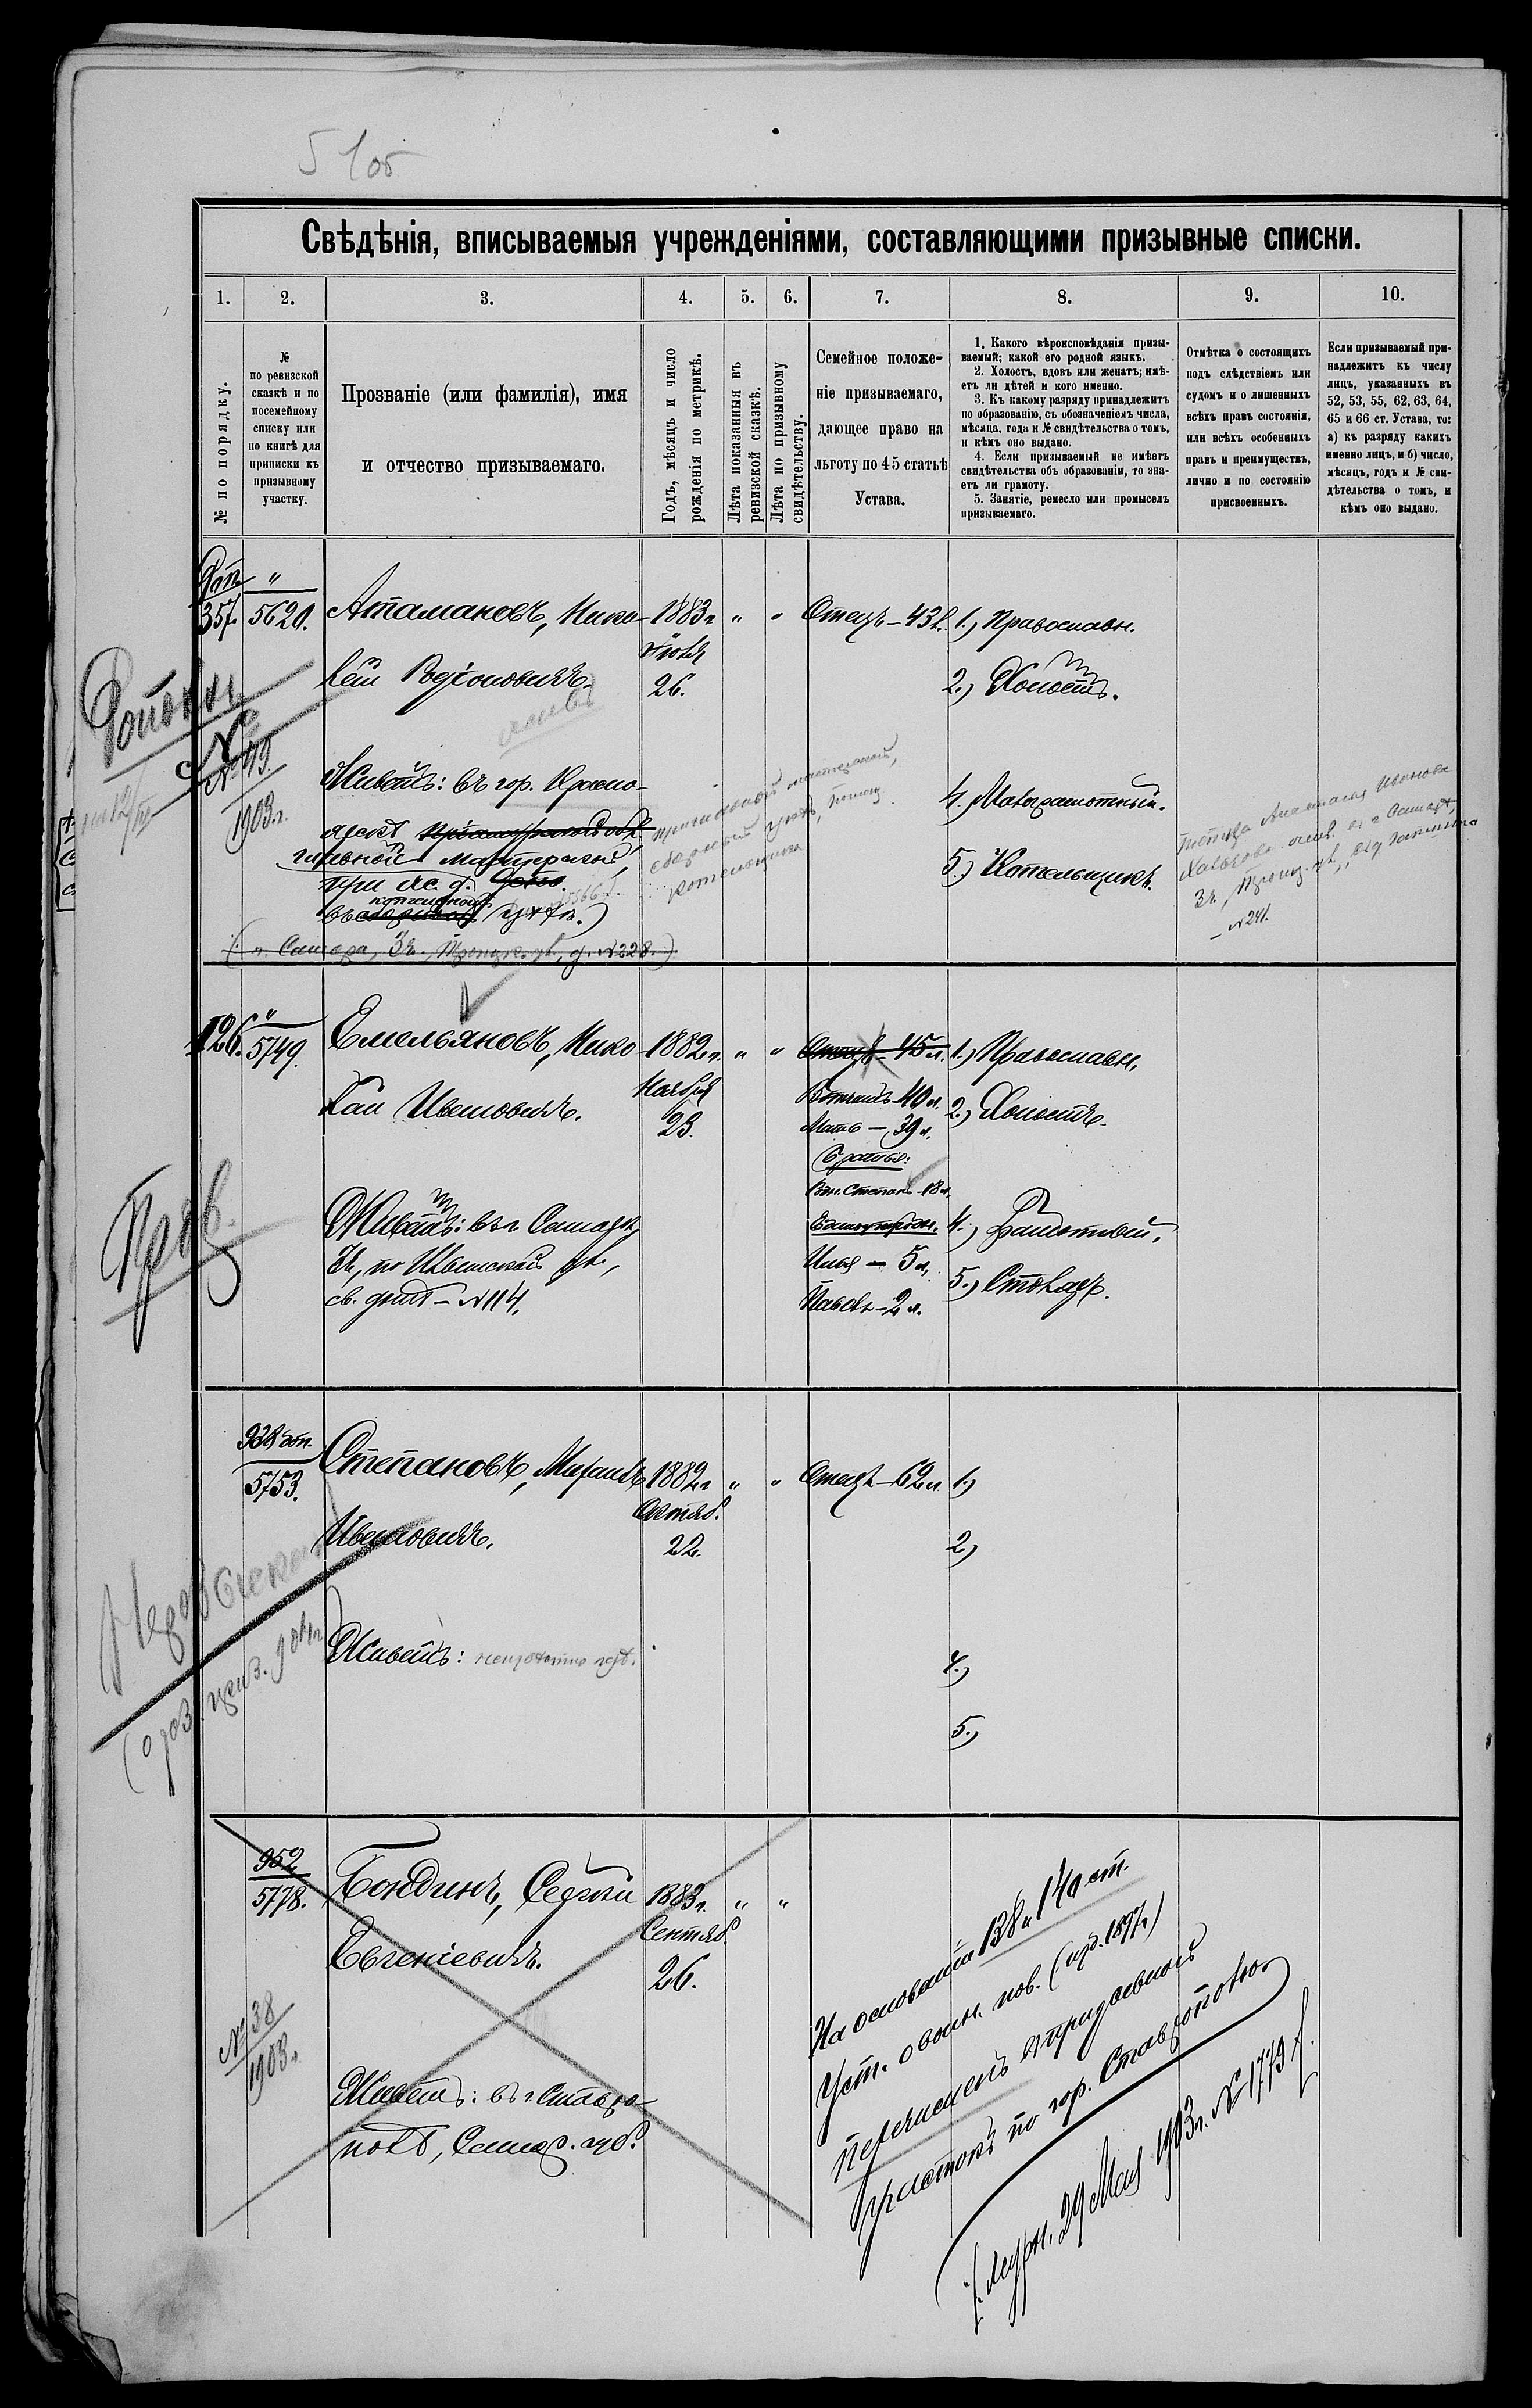 5 1об
Свѣдѣнія, вписываемыя учрежденіями, составляющими призывные списки.
1. 2. 3. 4. 5. 6. 7. 8. 9. 10.
№ по порядку.
№
по ревизской
сказкѣ и по
посемейному
списку или
по книгѣ для
приписки къ
призывному
участку.
Прозваніе (или фамилія), имя
и отчество призываемаго.
Годъ, мѣсяцъ и число
рожденія по метрикѣ.
Лѣта показанныя въ
ревизской сказкѣ.
Лѣта по призывному
свидѣтельству.
Семейное положе-
ніе призываемаго,
дающее право на
льготу по 45 статьѣ
Устава.
1. Какого вѣроисповѣданія призы-
ваемый; какой его родной языкъ.
2. Холостъ, вдовъ или женатъ; имѣ-
етъ ли дѣтей и кого именно.
3. Къ какому разряду принадлежитъ
по образованію, съ обозначеніемъ числа,
мѣсяца, года и № свидѣтельства о томъ,
и кѣмъ оно выдано.
4. Если призываемый не имѣетъ
свидѣтельства объ образованіи, то зна-
етъ ли грамоту.
5. Занятіе, ремесло или промыселъ
призываемаго.
Отмѣтка о состоящихъ
подъ слѣдствіемъ или
судомъ и о лишенныхъ
всѣхъ правъ состоянія,
или всѣхъ особенныхъ
правъ и преимуществъ,
лично и по состоянію
присвоенныхъ.
Если призываемый при-
надлежитъ къ числу
лицъ, указанныхъ въ
52, 53, 55, 62, 63, 64,
65 и 66 ст. Устава, то:
а) къ разряду какихъ
именно лицъ, и б) число,
мѣсяцъ, годъ и № сви-
дѣтельства о томъ, и
кѣмъ оно выдано.
357. 5620. Атамановъ, Нико- 1883 г. " " Отецъ - 43 л. 1.) Православн.
лай Родіоновичъ. Іюля
26.
2.) Холостъ.
№ 49.
1903 г.
Живетъ: въ гор. Красно-
ярскѣ
при ж. д.
4.) Малограмотный.
5.) Котельщикъ.
(г. Самара, 3 ч., Троицк. ул., д. № 228.)
№ 241.
126. " 5749. Емельяновъ, Нико- 1882 г. " " Отецъ - 45 л. 1.) Православн.
лай Ивановичъ. Ноября
23.
Вотчимъ - 40 л.
Мать - 39 л.
2.) Холостъ.
Братья:
Степанъ - 18 л.
Живетъ: въ г. Самарѣ,
3 ч., по Ильинской ул.,
св. домъ - № 114.
4.) Грамотный.
Илья - 5 л.
Павелъ - 2 л.
5.) Столяръ.
938 доп.
5753. Степановъ, Михаилъ 1882 г. " " Отецъ - 62 л. 1.)
Ивановичъ. Октяб.
22.
2.)
Живетъ: неизвѣстно гдѣ.
4.)
5.)
952
5778. Бондинъ, Сергѣй 1883 г. " "
Евгеніевичъ. Сентяб.
26.
№ 38
1903 г.
Живетъ: въ г. Ставро-
полѣ, Самар. губ.
На основаніи 138 и 140 ст.
Уст. о воин. пов. (изд. 1897 г.)
перечисленъ въ призывной
участокъ по гор. Ставрополю.
(Журн. 29 Мая 1903 г. № 1779).